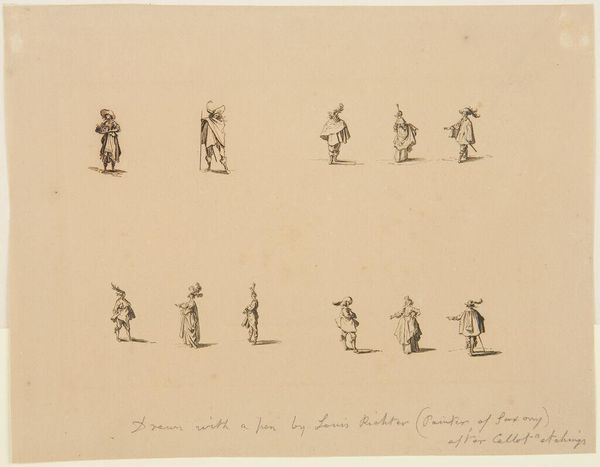 Drawn with a pen by Louis Richter (Painter of Saxony)
after Callot's etchings